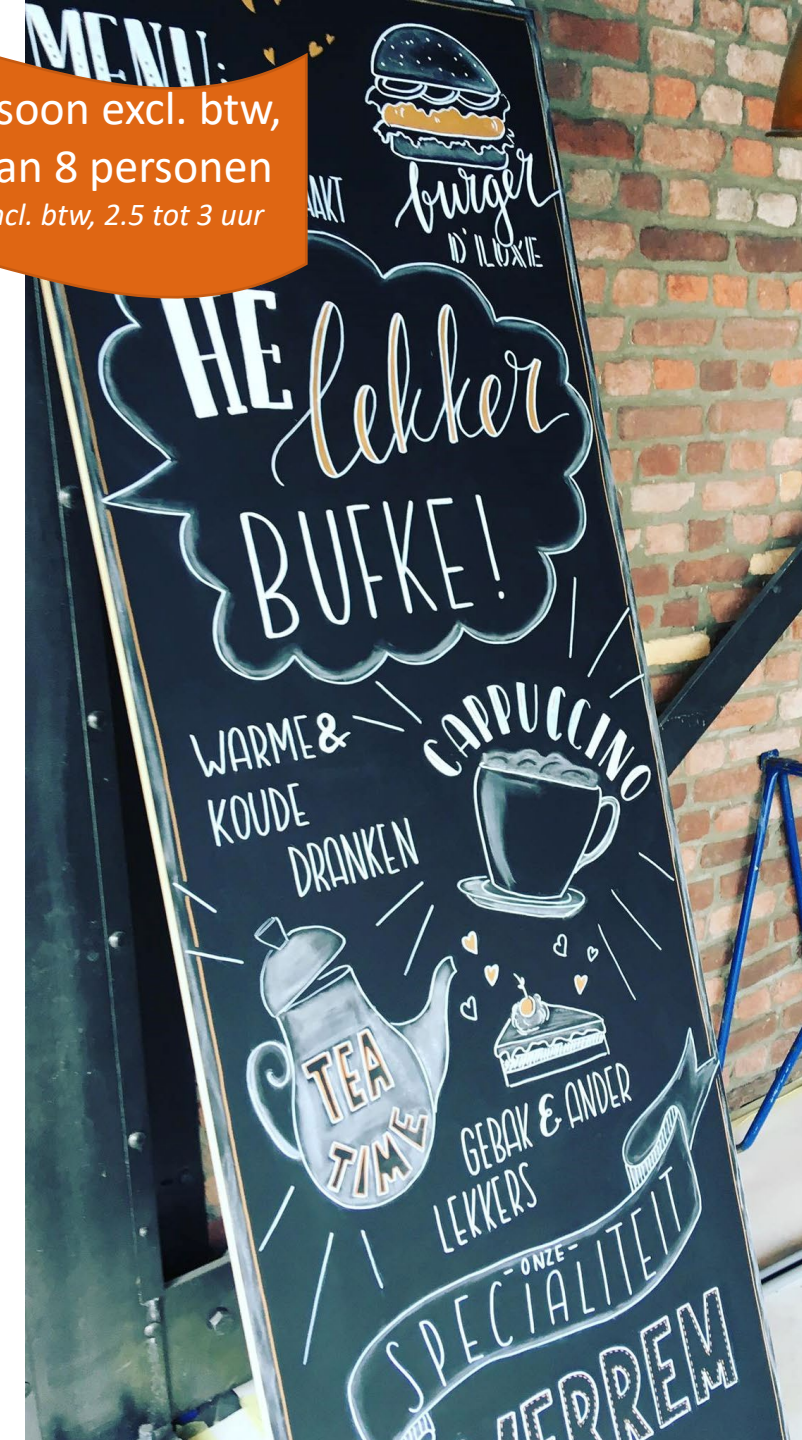 MENU:
soon excl. btw,
an 8 personen
ncl. btw, 2.5 tot 3 uur
AKT
burger
D'LUXE
HE
lekker
BUFKE!
WARME &
KOUDE
DRANKEN
CAPPUCCINO
TEA
TIME
GEBAK & ANDER
LEKKERS
- ONZE -
SPECIALITEIT
VERREM